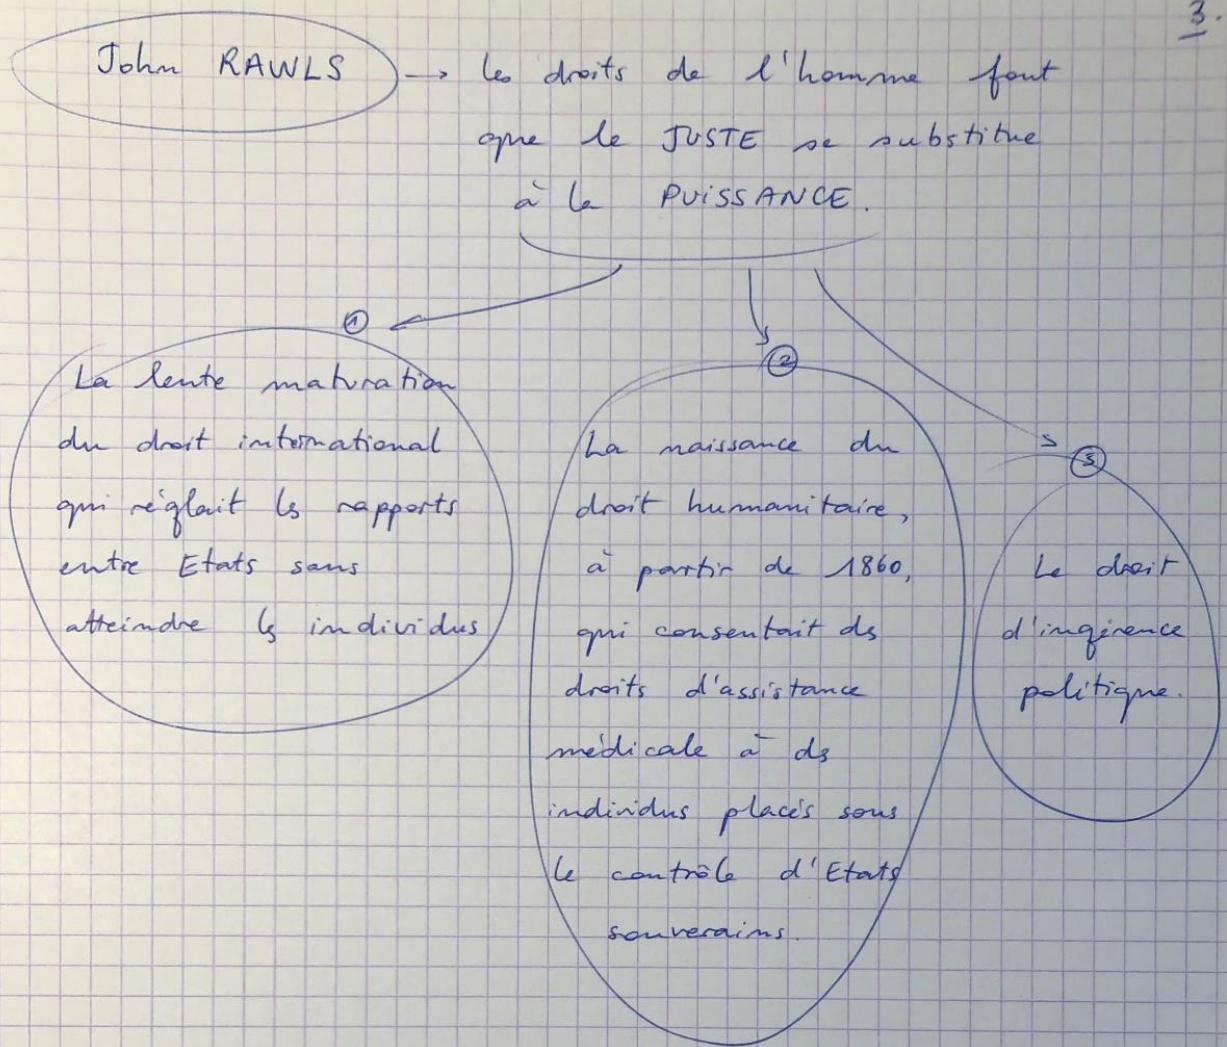 3.
John RAWLS → les droits de l'homme font
que le JUSTE se substitue
à la PUISSANCE.
①
La lente maturation
du droit international
qui réglait ls rapports
entre Etats sans
atteindre ls individus
②
La naissance du
droit humanitaire,
à partir de 1860,
qui consentait ds
droits d'assistance
médicale à ds
individus placés sous
le contrôle d'Etats
souverains.
③
Le droit
d'ingérence
politique.